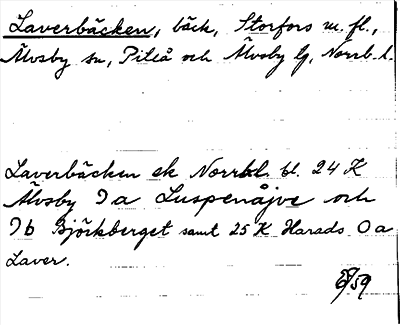 Laverbäcken, bäck, Storfors m. fl.,
Älvsby sn, Piteå och Älvsby lg, Norrb. l.
Laverbäcken ek Norrbl. bl. 24 K
Älvsby 9a Luspenåjve och
9b Björkberget samt 25 K Harads 0a
Laver.
/59